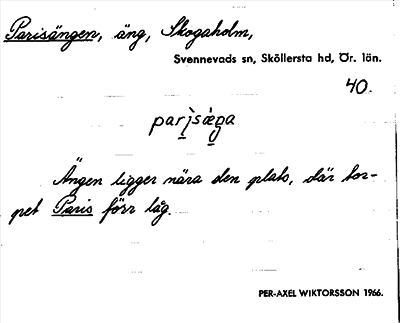 Parisängen, äng, Skogaholm,
Svennevads sn, Sköllersta hd, Ör. län.
40.
parìsæŋa
Ängen ligger nära den plats, där tor-
pet Paris förr låg.
PER-AXEL WIKTORSSON 1966.